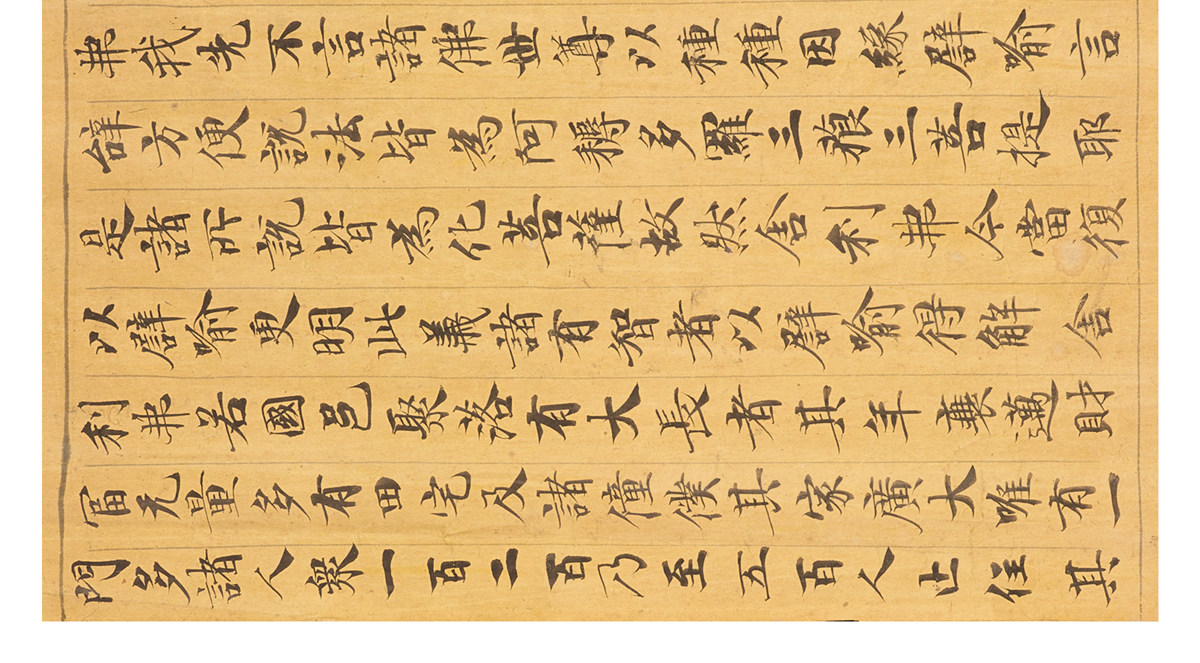 弗我先不言諸佛世尊以種種因緣譬喻言
辭方便說法皆為阿耨多羅三藐三菩提耶
是諸所說皆為化菩薩故然舍利弗今當復
以譬喻更明此義諸有智者以譬喻得解舍
利弗若國邑聚落有大長者其年衰邁財
富无量多有田宅及諸僮僕其家廣大唯有一
門多諸人衆一百二百乃至五百人止住其